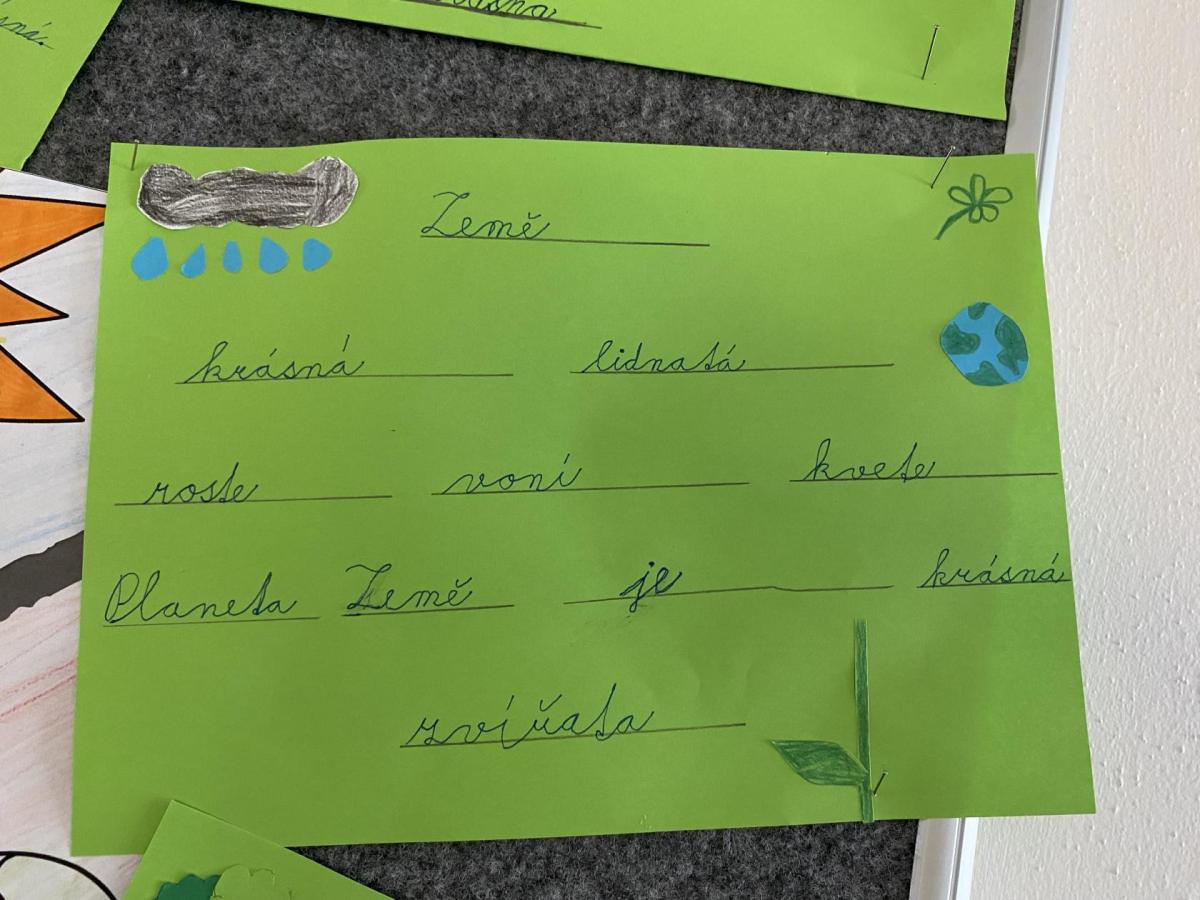 Země
krásná lidnatá
roste voní kvete
Planeta Země je krásná
zvířata